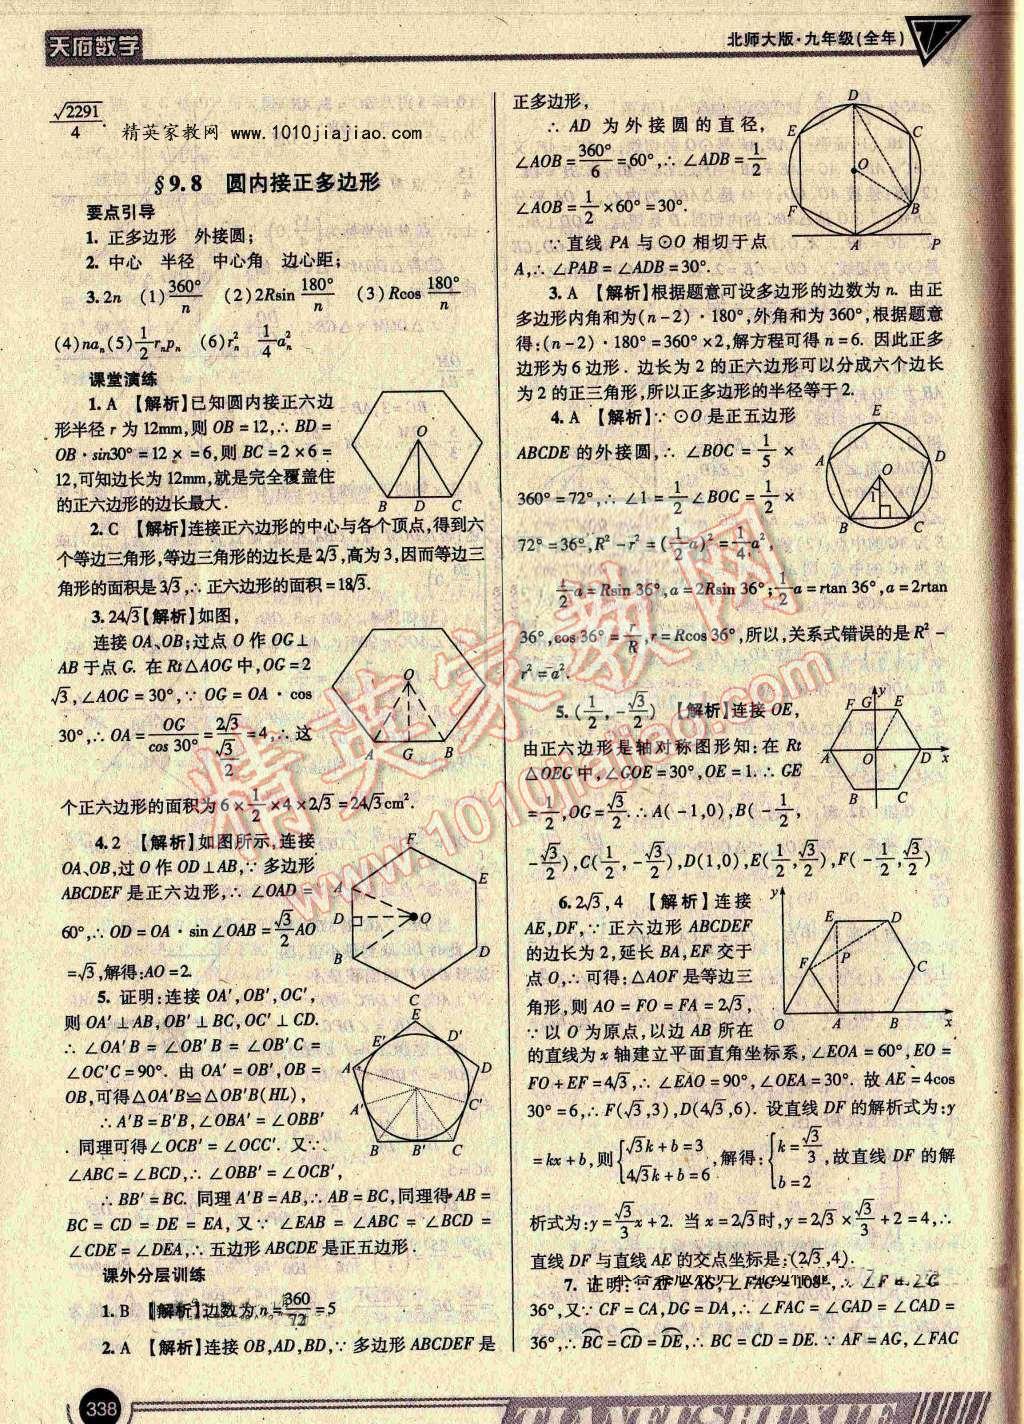 天府数学
北师大版·九年级(全年)
√2291/4.
精英家教网 www.1010jiajiao.com
§9.8 圆内接正多边形
要点引导
1. 正多边形 外接圆;
2. 中心 半径 中心角 边心距;
3. 2n (1) 360°/n (2) 2Rsin 180°/n (3) Rcos 180°/n
(4) naₙ (5) 1/2 rₙpₙ (6) rₙ² 1/4 aₙ²
课堂演练
1. A 【解析】已知圆内接正六边
形半径 r 为 12mm,则 OB = 12,∴ BD =
OB · sin30° = 12 × = 6,则 BC = 2 × 6 =
12,可知边长为 12mm,就是完全覆盖住
的正六边形的边长最大.
O
B D C
2. C 【解析】连接正六边形的中心与各个顶点,得到六
个等边三角形,等边三角形的边长是 2√3,高为 3,因而等边三
角形的面积是 3√3,∴ 正六边形的面积 = 18√3.
3. 24√3 【解析】如图,
连接 OA、OB;过点 O 作 OG⊥
AB 于点 G. 在 Rt△AOG 中,OG = 2
√3,∠AOG = 30°,∵ OG = OA · cos
30°,∴ OA = OG/cos 30° = 2√3/(√3/2) = 4,∴ 这
个正六边形的面积为 6 × 1/2 × 4 × 2√3 = 24√3cm².
O
A G B
4. 2 【解析】如图所示,连接
OA、OB,过 O 作 OD⊥AB,∵ 多边形
ABCDEF 是正六边形,∴ ∠OAD =
60°,∴ OD = OA · sin∠OAB = √3/2 AO
= √3,解得:AO = 2.
F
A E
D O
B D
C
5. 证明:连接 OA′,OB′,OC′,
则 OA′⊥AB,OB′⊥BC,OC′⊥CD.
∴ ∠OA′B = ∠OB′B = ∠OB′C =
∠OC′C = 90°. 由 OA′ = OB′,OB =
OB,可得△OA′B≌△OB′B(HL),
∴ A′B = B′B,∠OBA′ = ∠OBB′
同理可得∠OCB′ = ∠OCC′. 又∵
∠ABC = ∠BCD,∴ ∠OBB′ = ∠OCB′,
∴ BB′ = BC. 同理 A′B = AB,∴ AB = BC,同理得 AB =
BC = CD = DE = EA,又∵ ∠EAB = ∠ABC = ∠BCD =
∠CDE = ∠DEA,∴ 五边形 ABCDE 是正五边形.
E
E′ D′
A D
A′ C′
B B′ C
课外分层训练
1. B 【解析】边数为 n = 360/72 = 5
2. A 【解析】连接 OB,AD,BD,∵ 多边形 ABCDEF 是
338
正多边形,
∴ AD 为外接圆的直径,
∠AOB = 360°/6 = 60°,∴ ∠ADB = 1/2
∠AOB = 1/2 × 60° = 30°.
∵ 直线 PA 与 ⊙O 相切于点
A,∴ ∠PAB = ∠ADB = 30°.
D
E C
O
F B
A P
3. A 【解析】根据题意可设多边形的边数为 n. 由正
多边形内角和为 (n − 2) · 180°,外角和为 360°,根据题意
得:(n − 2) · 180° = 360° × 2,解方程可得 n = 6. 因此正多
边形为 6 边形. 边长为 2 的正六边形可以分成六个边长
为 2 的正三角形,所以正多边形的半径等于 2.
4. A 【解析】∵ ⊙O 是正五边形
ABCDE 的外接圆,∴ ∠BOC = 1/5 ×
360° = 72°,∴ ∠1 = 1/2 ∠BOC = 1/2 ×
72° = 36°,R² − r² = (1/2 a)² = 1/4 a²,
1/2 a = Rsin 36°,a = 2Rsin 36°;1/2 a = rtan 36°,a = 2rtan
36°,cos 36° = r/R,r = Rcos 36°,所以,关系式错误的是 R² −
r² = a².
E
A D
O
1
B C
5. (1/2, −√3/2) 【解析】连接 OE,
由正六边形是轴对称图形知:在 Rt
△OEG 中,∠GOE = 30°,OE = 1. ∴ GE
= 1/2,OG = √3/2. ∴ A(−1,0),B(−1/2,
−√3/2),C(1/2, −√3/2),D(1,0),E(1/2, √3/2),F(−1/2, √3/2)
y
F E
A O D x
B C
6. 2√3,4 【解析】连接
AE,DF,∵ 正六边形 ABCDEF
的边长为 2,延长 BA,EF 交于
点 O,∴ 可得:△AOF 是等边三
角形,则 AO = FO = FA = 2√3,
∵ 以 O 为原点,以边 AB 所在
的直线为 x 轴建立平面直角坐标系,∠EOA = 60°,EO =
FO + EF = 4√3,∴ ∠EAO = 90°,∠OEA = 30°. 故 AE = 4cos
30° = 6,∴ F(√3,3),D(4√3,6). 设直线 DF 的解析式为:y
= kx + b,则 {√3k + b = 3 4√3k + b = 6,解得:{k = √3/3 b = 2,故直线 DF 的解
析式为:y = √3/3 x + 2. 当 x = 2√3时,y = 2√3 × √3/3 + 2 = 4,∴
直线 DF 与直线 AE 的交点坐标是:(2√3,4).
y
E D
F P C
O A B x
7. 证明:∵ AF = AG,∠FAG = 108°,∴ ∠F = ∠G
36°,又∵ CF = CA,DG = DA,∴ ∠FAC = ∠GAD = ∠CAD =
36°,∴ BC = CD = DE,∴ BC = CD = DE. ∵ AF = AG,∠FAC
TIANFU SHUXUE
精英家教网
www.1010jiajiao.com